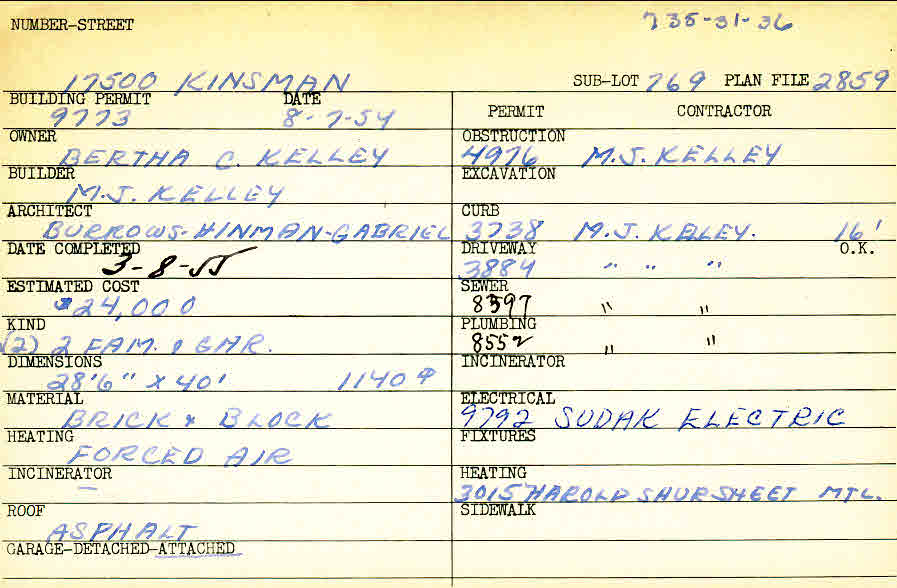 NUMBER-STREET 735-31-36
17500 KINSMAN SUB-LOT 769 PLAN FILE 2859
BUILDING PERMIT DATE PERMIT CONTRACTOR
9773 8-7-54
OWNER OBSTRUCTION
BERTHA C. KELLEY 4976 M.J. KELLEY
BUILDER EXCAVATION
M.J. KELLEY
ARCHITECT CURB
BURROWS-HINMAN-GABRIEL 3738 M.J. KELEY. 16'
DATE COMPLETED DRIVEWAY O.K.
3-8-55 3884 " " "
ESTIMATED COST SEWER
$24,000 8397 " "
KIND PLUMBING
(2) 2 FAM. & GAR. 8552 " "
DIMENSIONS INCINERATOR
28'6" X 40' 1140
MATERIAL ELECTRICAL
BRICK & BLOCK 9792 SUDAK ELECTRIC
HEATING FIXTURES
FORCED AIR
INCINERATOR HEATING
— 3015 HAROLD SHUR SHEET MTL.
ROOF SIDEWALK
ASPHALT
GARAGE-DETACHED-ATTACHED